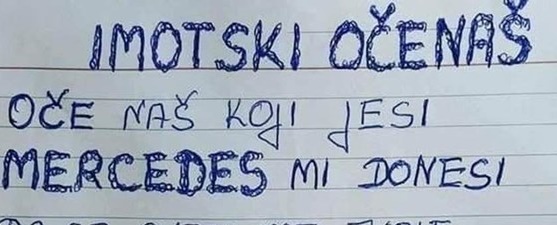 IMOTSKI OČENAŠ
OČE NAŠ KOJI JESI
MERCEDES MI DONESI